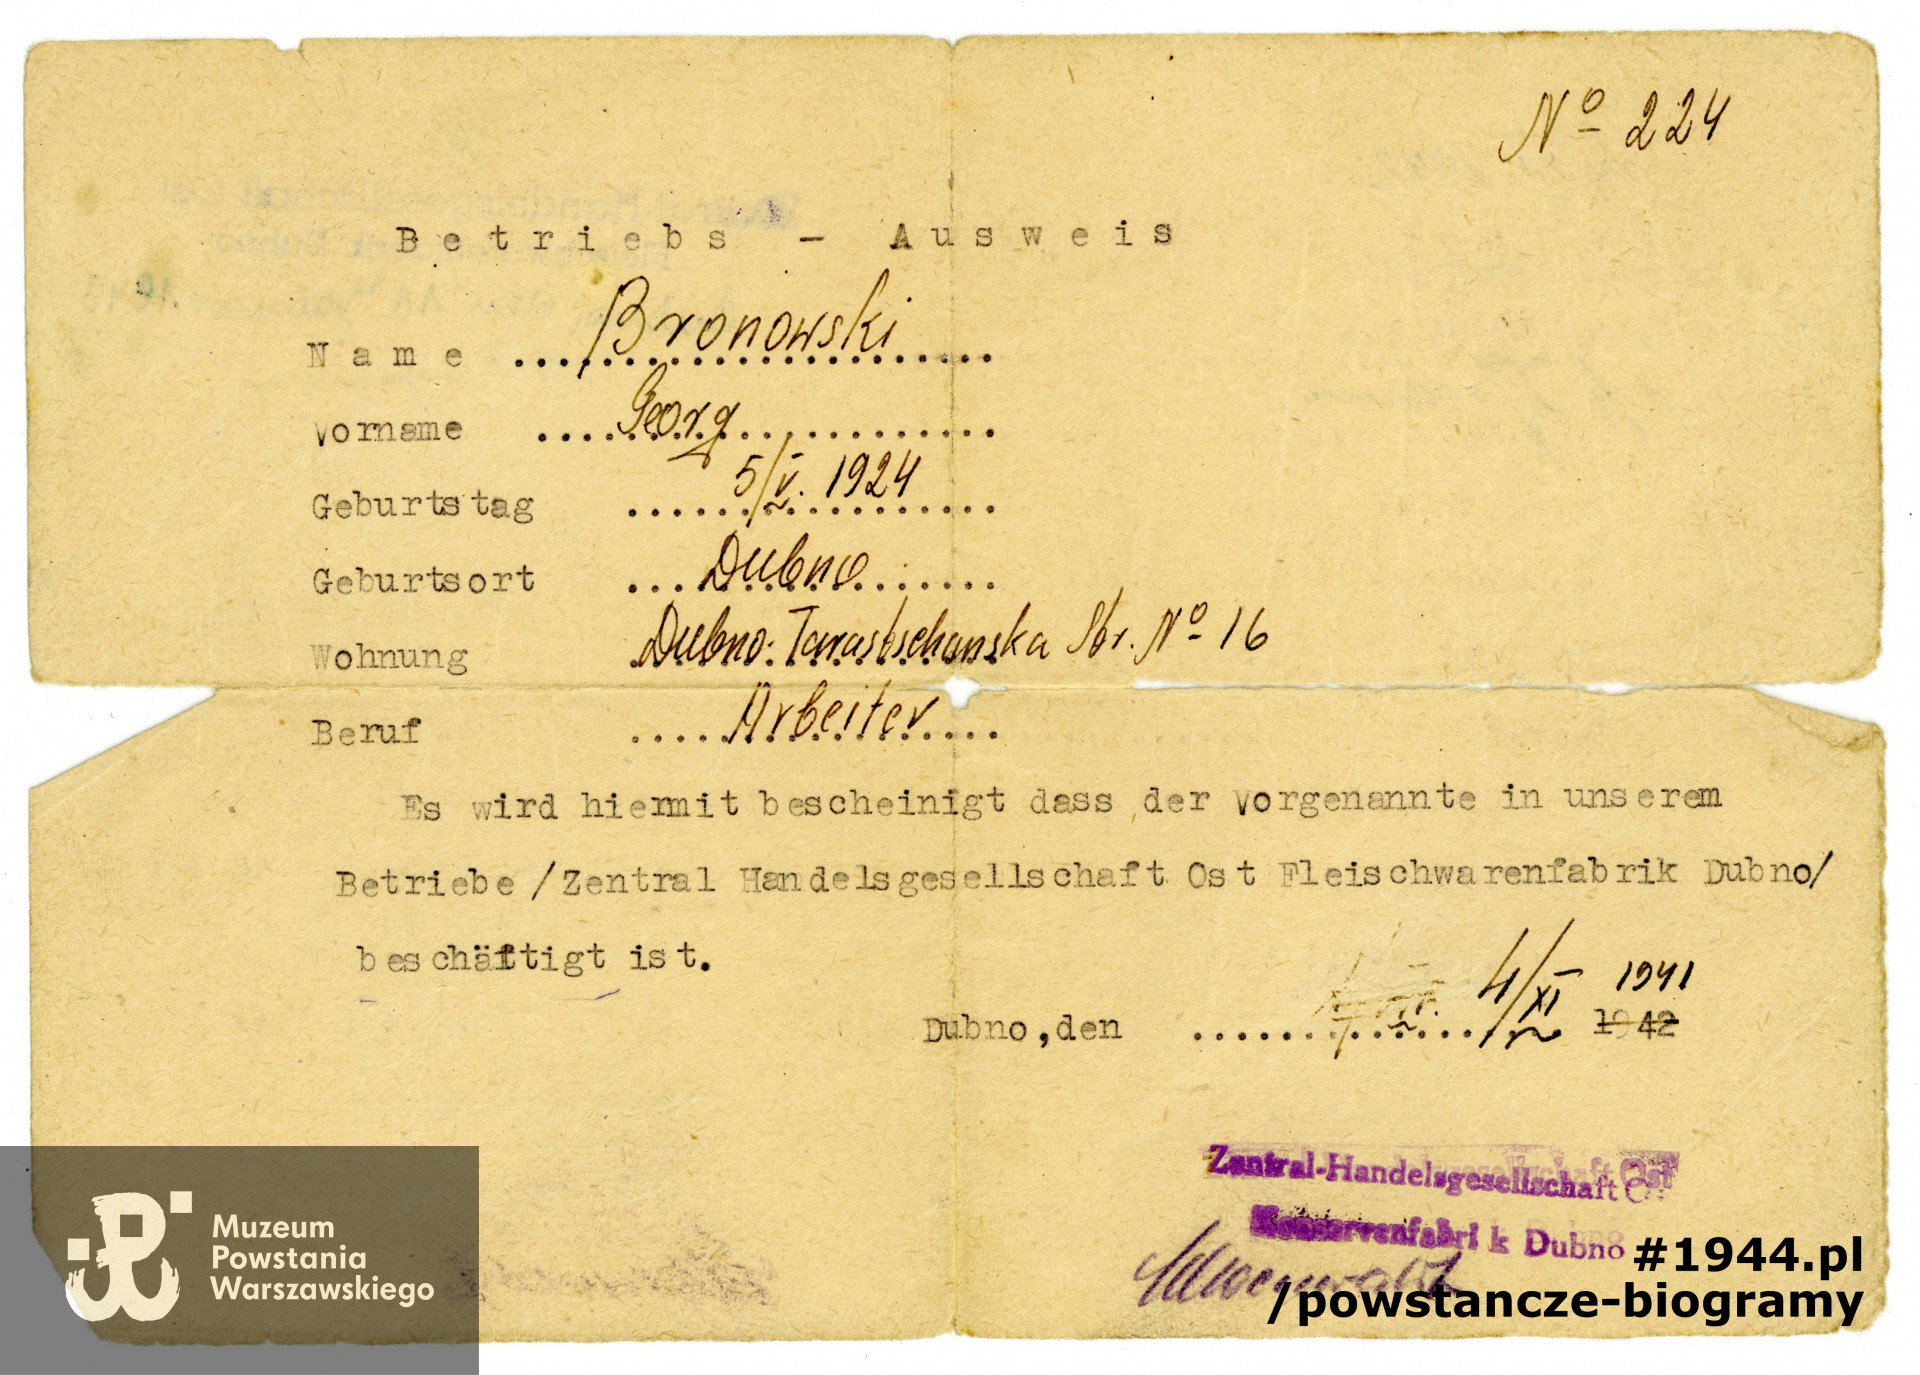 Nº 224
Betriebs - Ausweis
Name Bronowski
Vorname Georg
Geburtstag 5/V. 1924
Geburtsort Dubno
Wohnung Dubno. Tarastschanska Str. Nº 16
Beruf Arbeiter
Es wird hiermit bescheinigt dass der Vorgenannte in unserem
Betriebe /Zentral Handelsgesellschaft Ost Fleischwarenfabrik Dubno/
beschäftigt ist.
Dubno, den 4/XI 1941 1942
Zentral-Handelsgesellschaft Ost
Konservenfabrik Dubno
Muzeum
Powstania
Warszawskiego
#1944.pl
/powstancze-biogramy